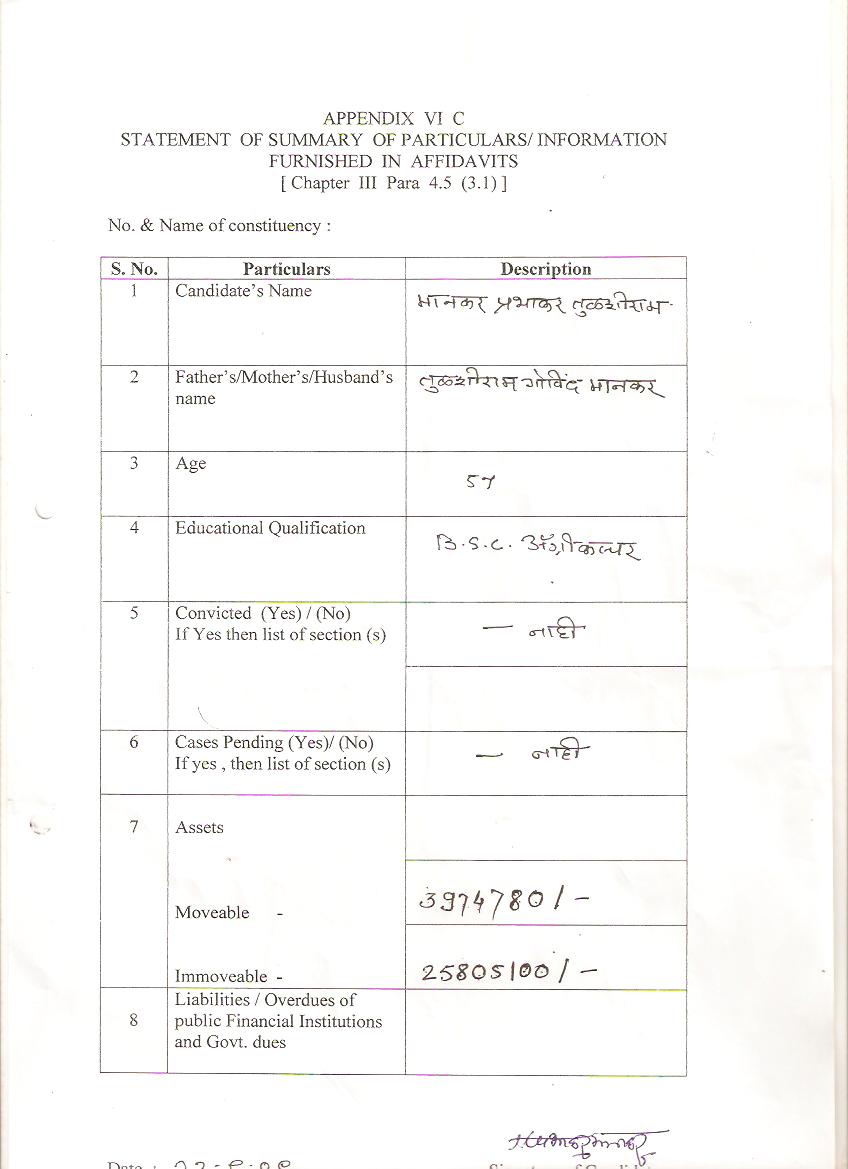 APPENDIX VI C
STATEMENT OF SUMMARY OF PARTICULARS/ INFORMATION
FURNISHED IN AFFIDAVITS
[ Chapter III Para 4.5 (3.1) ]
No. & Name of constituency :
S. No. Particulars Description
1 Candidate's Name मानकर प्रभाकर तुळशीराम
2 Father's/Mother's/Husband's तुळशीराम गोविंद मानकर
name
3 Age
4 Educational Qualification B.S.C. अॅग्रीकल्चर
5 Convicted (Yes) / (No) — नाही
If Yes then list of section (s)
6 Cases Pending (Yes)/ (No) — नाही
If yes , then list of section (s)
7 Assets
Moveable - 3974780/-
Immoveable - 25805100/-
Liabilities / Overdues of
8 public Financial Institutions
and Govt. dues
Date :